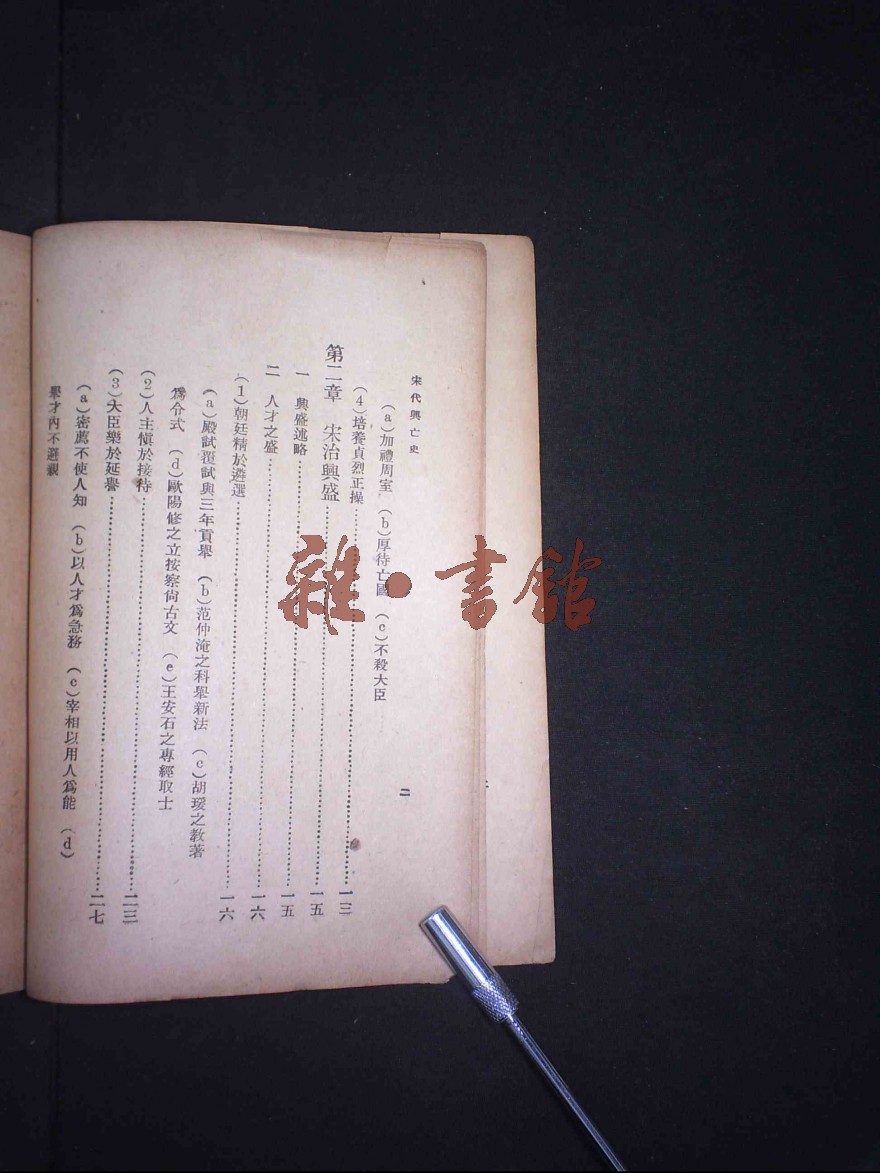 宋代興亡史
二
(a)加禮周室 (b)厚待亡國 (c)不殺大臣
(4)培養貞烈正操……一三
第二章 宋治興盛……一五
一 興盛述略……一五
二 人才之盛……一六
(1)朝廷精於遴選……一六
(a)殿試覆試與三年貢舉 (b)范仲淹之科舉新法 (c)胡瑗之敎著
爲令式 (d)歐陽修之立按察尙古文 (e)王安石之專經取士
(2)人主愼於接待……二三
(3)大臣樂於延譽……二七
(a)密薦不使人知 (b)以人才爲急務 (c)宰相以用人爲能 (d)
舉才內不避親
雜·書館